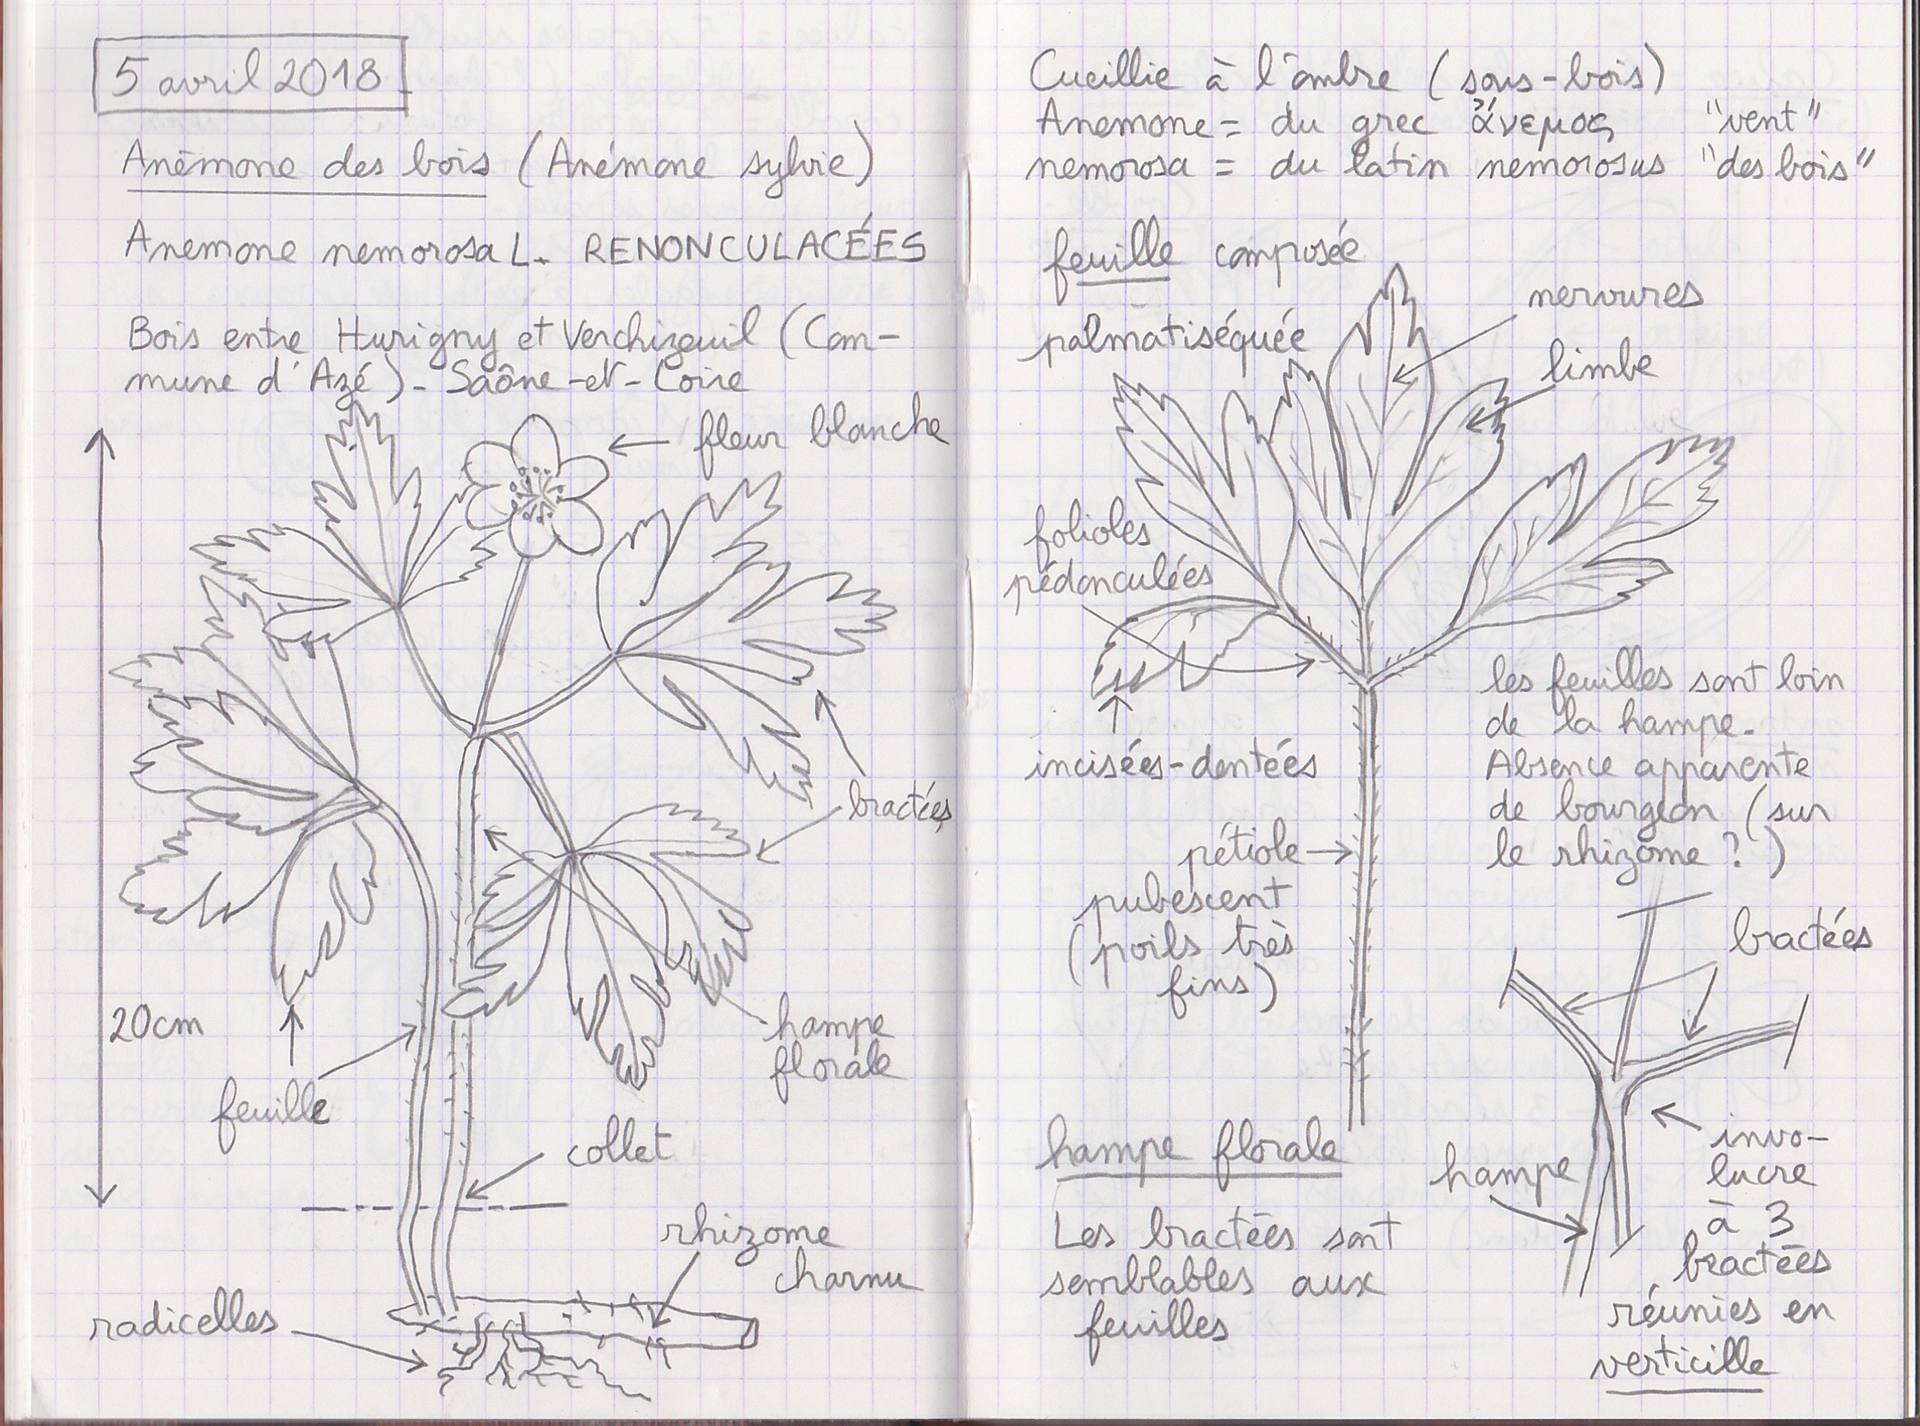 5 avril 2018
Anémone des bois (Anémone sylvie)
Anemone nemorosa L. RENONCULACÉES
Bois entre Hurigny et Verchizeuil (Com-
mune d'Azé) - Saône-et-Loire
fleur blanche
bractées
20cm
hampe
florale
feuille
collet
rhizome
charnu
radicelles
Cueillie à l'ombre (sous-bois)
Anemone = du grec ἄνεμος "vent"
nemorosa = du latin nemorosus "des bois"
feuille composée
palmatiséquée
nervures
limbe
folioles
pédonculées
incisées-dentées
les feuilles sont loin
de la hampe.
Absence apparente
de bourgeon (sur
le rhizome ?)
pétiole
pubescent
(poils très
fins)
bractées
hampe florale
Les bractées sont
semblables aux
feuilles
hampe
invo-
lucre
à 3
bractées
réunies en
verticille